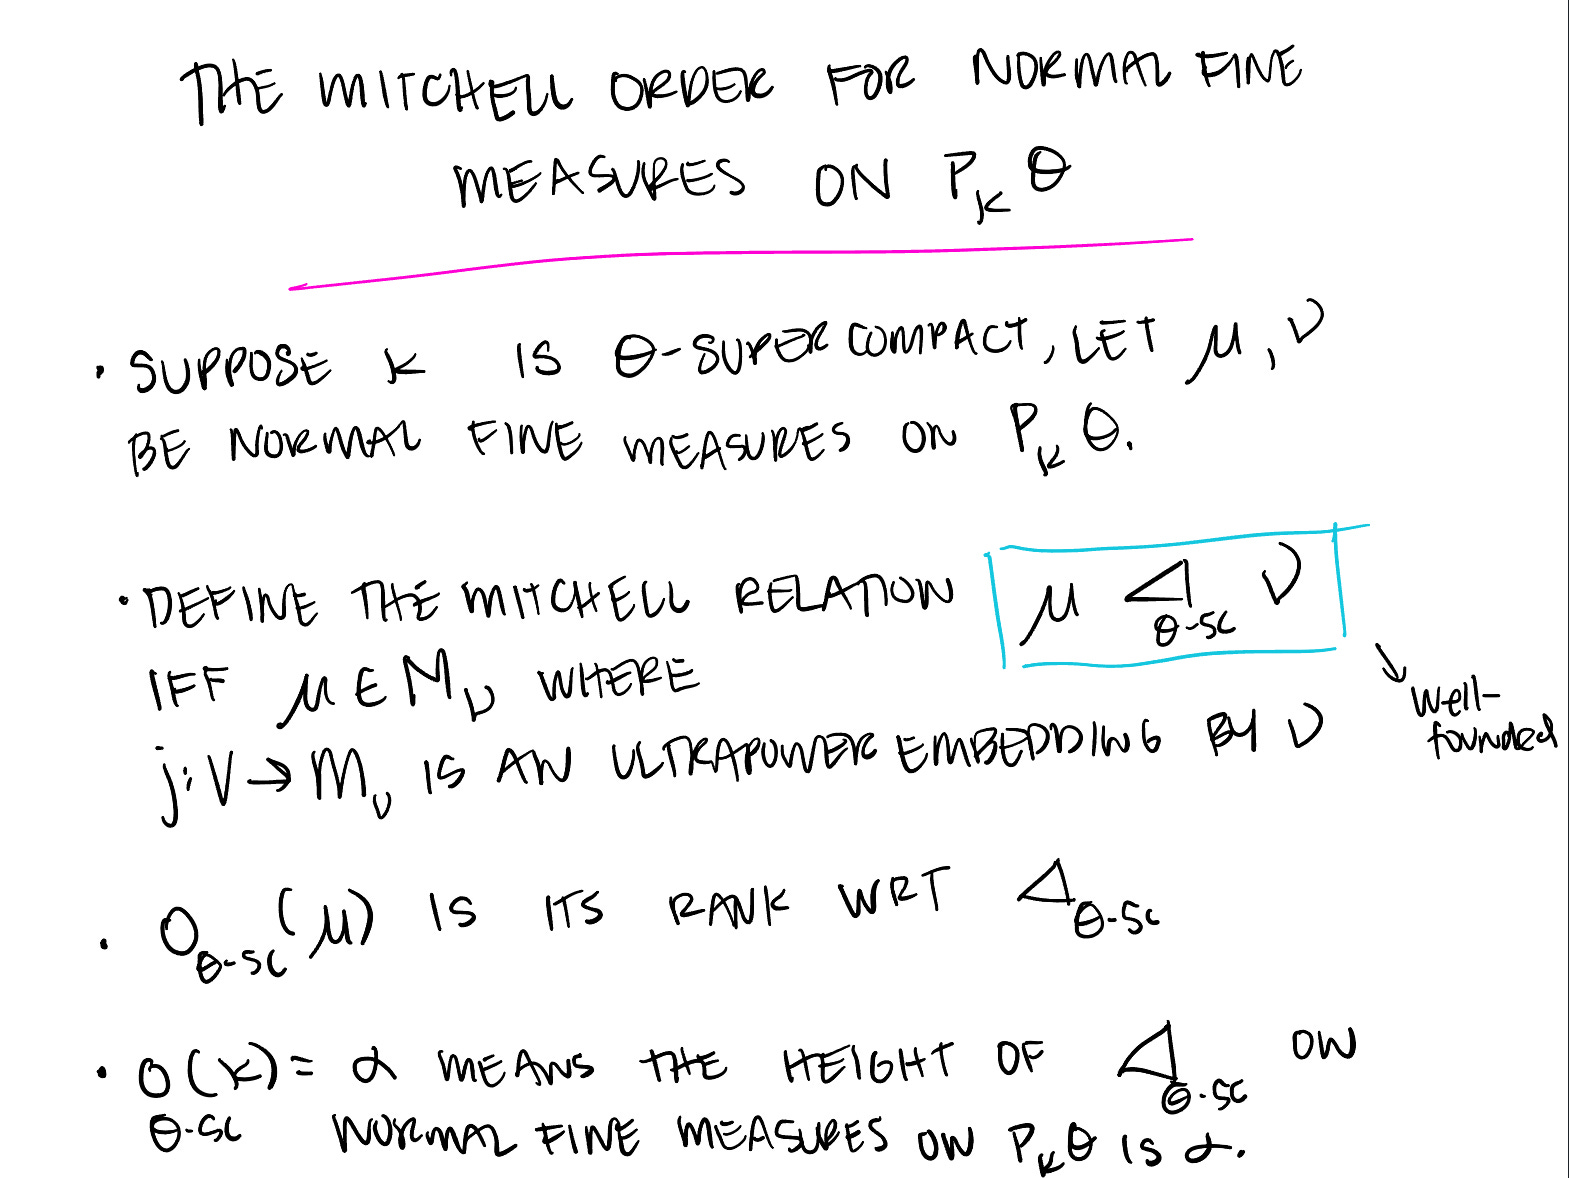 THE MITCHELL ORDER FOR NORMAL FINE
MEASURES ON P_κ θ
• SUPPOSE κ IS θ-SUPERCOMPACT, LET μ, ν
BE NORMAL FINE MEASURES ON P_κ θ.
• DEFINE THE MITCHELL RELATION μ ◁_θ-SC ν
IFF μ ∈ M_ν WHERE
j: V → M_ν IS AN ULTRAPOWER EMBEDDING BY ν
→ well-
founded
• O_θ-SC(μ) IS ITS RANK WRT ◁_θ-SC
• O_θ-SC(κ) = α MEANS THE HEIGHT OF ◁_θ-SC ON
NORMAL FINE MEASURES ON P_κ θ IS α.